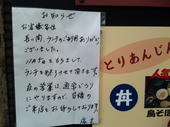 お知らせ
お客様各位
長い間、ランチのご利用ありがとう
ございました。
11月5日をもちまして、
ランチを終了させて頂きます。
夜の営業は通常どうり
にやりますので、皆様の
ご来店をお待ちしております。
店主
とりあんじん
人気
丼
鳥そ